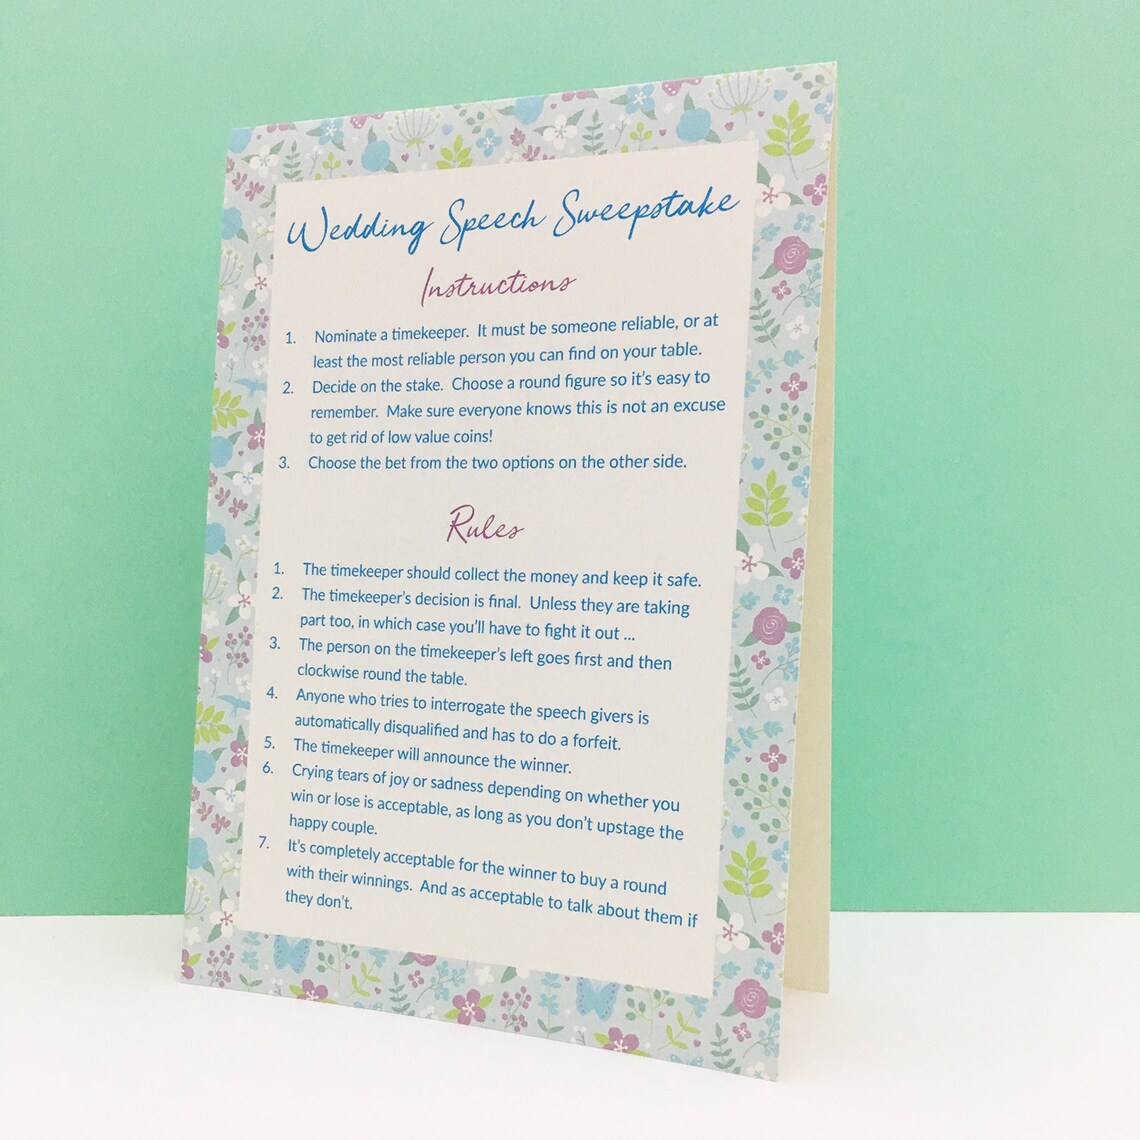 Wedding Speech Sweepstake
Instructions
1. Nominate a timekeeper. It must be someone reliable, or at
least the most reliable person you can find on your table.
2. Decide on the stake. Choose a round figure so it's easy to
remember. Make sure everyone knows this is not an excuse
to get rid of low value coins!
3. Choose the bet from the two options on the other side.
Rules
1. The timekeeper should collect the money and keep it safe.
2. The timekeeper's decision is final. Unless they are taking
part too, in which case you'll have to fight it out ...
3. The person on the timekeeper's left goes first and then
clockwise round the table.
4. Anyone who tries to interrogate the speech givers is
automatically disqualified and has to do a forfeit.
5. The timekeeper will announce the winner.
6. Crying tears of joy or sadness depending on whether you
win or lose is acceptable, as long as you don't upstage the
happy couple.
7. It's completely acceptable for the winner to buy a round
with their winnings. And as acceptable to talk about them if
they don't.